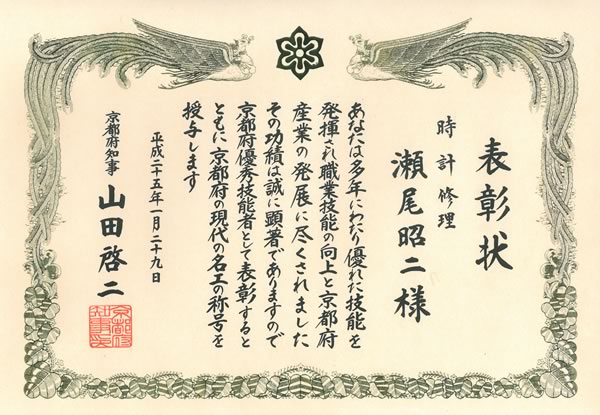 表彰状
時計修理
瀬尾昭二様
あなたは多年にわたり優れた技能を
発揮され職業技能の向上と京都府
産業の発展に尽くされました
その功績は誠に顕著でありますので
京都府優秀技能者として表彰すると
ともに京都府の現代の名工の称号を
授与します
平成二十五年一月二十九日
京都府知事 山田啓二